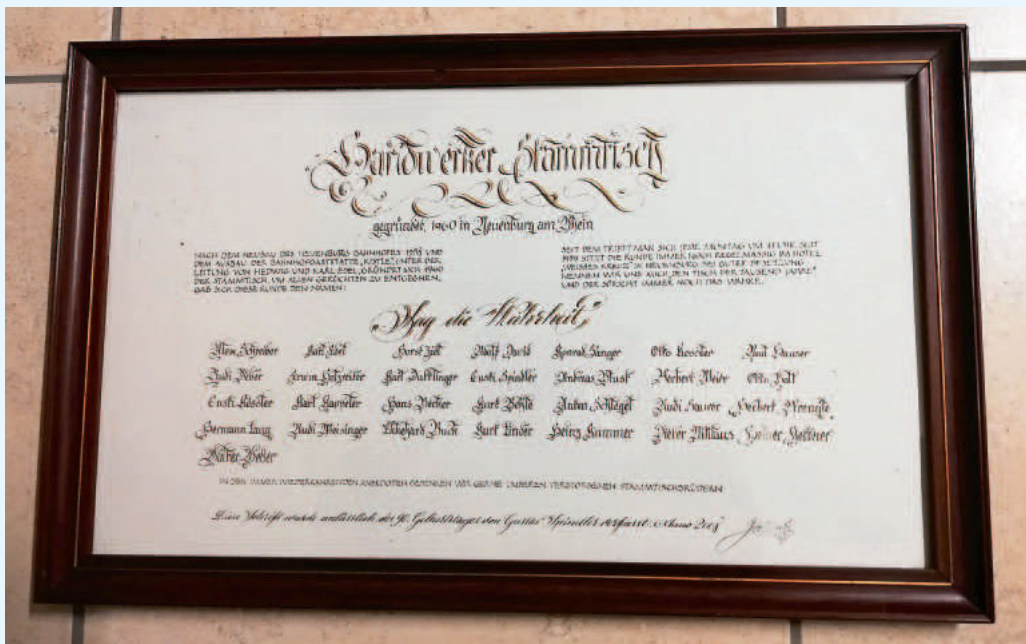 Handwerker Stammtisch
gegründet 1960 in Neuenburg am Rhein
NACH DEM NEUBAU DES NEUENBURG BAHNHOFES UND
DEM AUSBAU DER BAHNHOFGASTSTÄTTE UNTER DER
LEITUNG VON HEDWIG UND KARL EDEL, GRÜNDET SICH 1960
DER STAMMTISCH, UM ALLEN GERÜCHTEN ZU ENTGEGNEN,
GAB SICH DIESE RUNDE DEN NAMEN:
SEIT DEM TRIFFT MAN SICH JEDEN MONTAG UM UHR. SEIT
SITZT DIE RUNDE IMMER NOCH REGELMÄSSIG IM HOTEL
„WEISSES KREUZ" IN NEUENBURG. BEI GUTER BESETZUNG
NENNEN WIR UNS AUCH „DEN TISCH DER TAUSEND JAHRE"
UND DER SPRICHT IMMER NOCH DAS WAHRE.
„Sag die Wahrheit"
Schreiber Karl Edel Horst Adolf David Konrad Sänger Otto Kessler Paul Hauser
Rudi Weber Erwin Karl Dufflinger Gusti Spindler Andreas Herbert Meier Otto
Gusti Kessler Karl Kappeler Hans Becher Kurt Anton Schlegel Rudi Hauser Herbert
Hermann Lang Rudi Meisinger Ekkehard Buck Kurt Linder Heinz Kammer Dieter
Walter Weber
IN DEN IMMER WIEDERKEHRENDEN ANEKDOTEN GEDENKEN WIR GERNE UNSEREN VERSTORBENEN STAMMTISCHBRÜDERN
Diese Schrift wurde anlässlich des 90. Geburtstages von Gustav Spindler verfasst. Anno 2008